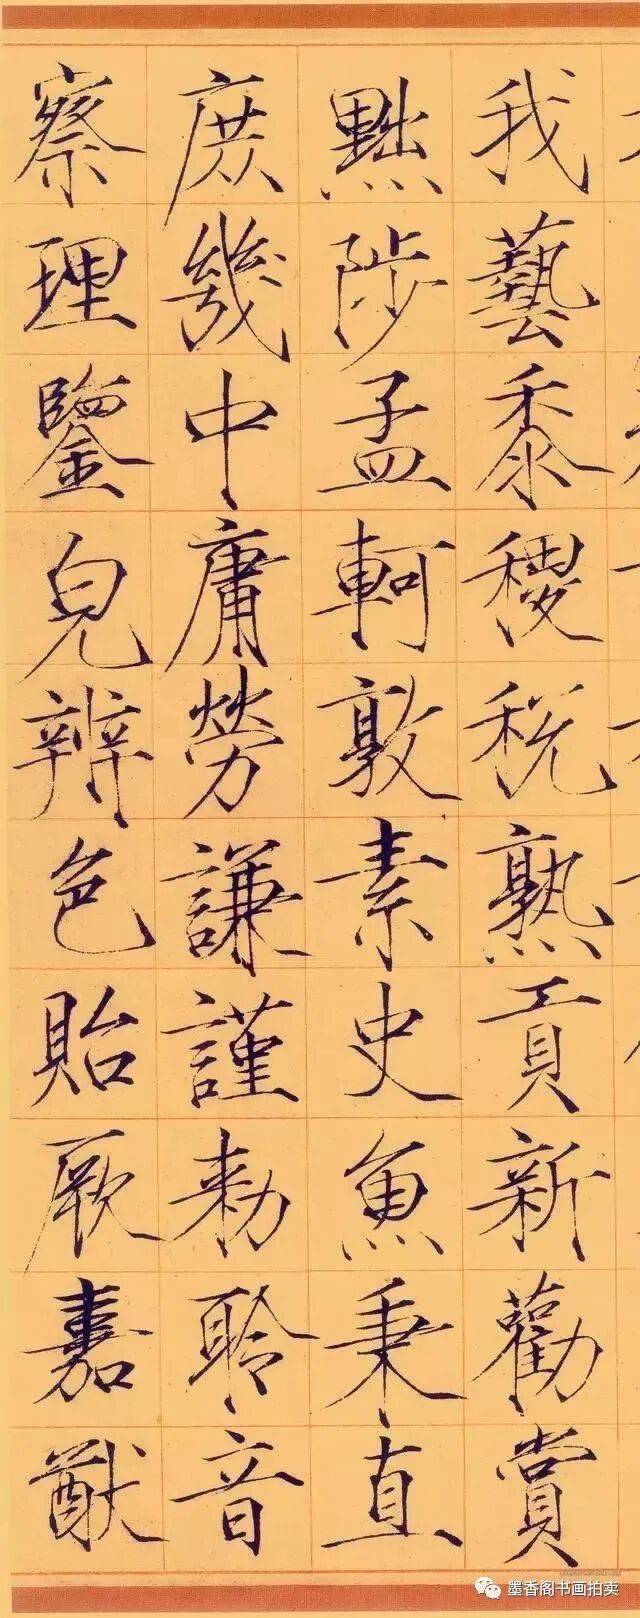 我藝黍稷稅熟貢新勸賞
黜陟孟軻敦素史魚秉直
庶幾中庸勞謙謹勅聆音
察理鑒皃辨色貽厥嘉猷
墨香阁书画拍卖